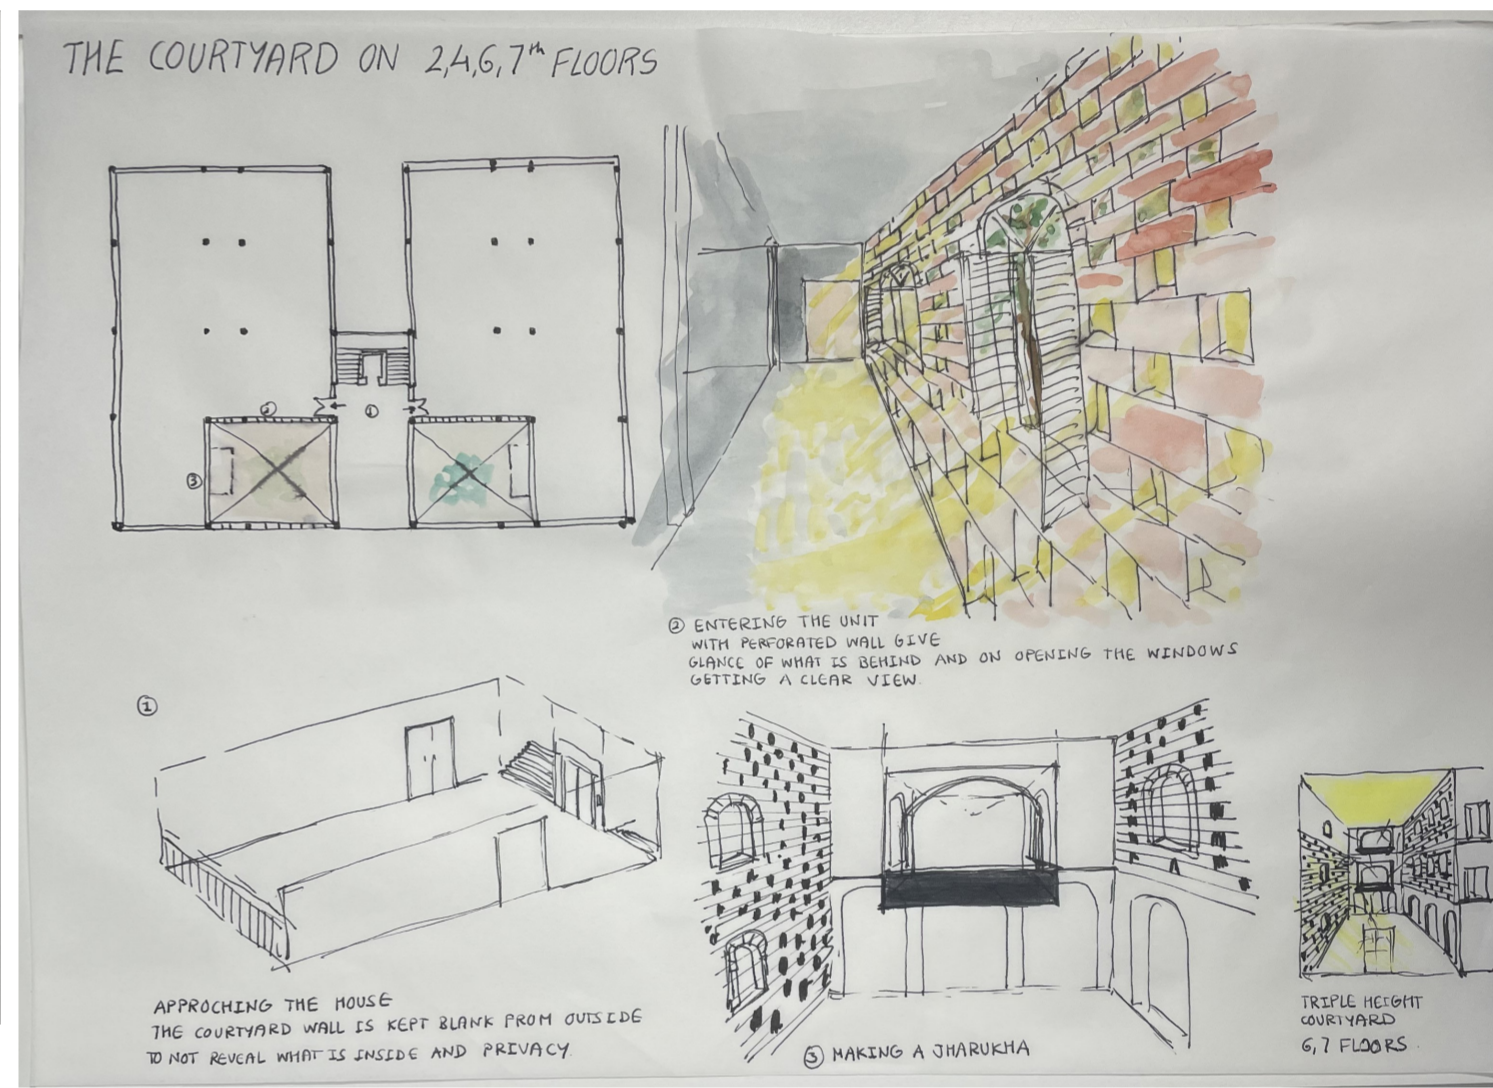 THE COURTYARD ON 2,4,6,7th FLOORS
②
①
③
② ENTERING THE UNIT
WITH PERFORATED WALL GIVE
GLANCE OF WHAT IS BEHIND AND ON OPENING THE WINDOWS
GETTING A CLEAR VIEW.
①
APPROCHING THE HOUSE
THE COURTYARD WALL IS KEPT BLANK FROM OUTSIDE
TO NOT REVEAL WHAT IS INSIDE AND PRIVACY.
③ MAKING A JHARUKHA
TRIPLE HEIGHT
COURTYARD
6,7 FLOORS.